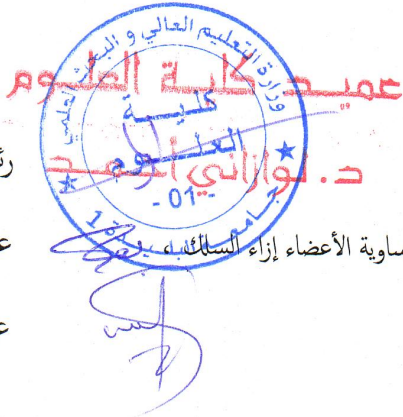 وزارة التعليم العالي و البحث العلمي
عميد كلية العلوم
كلية
العلوم
- 01 -
د. لوازاني أحمد
ساوية الأعضاء إزاء السلك ،